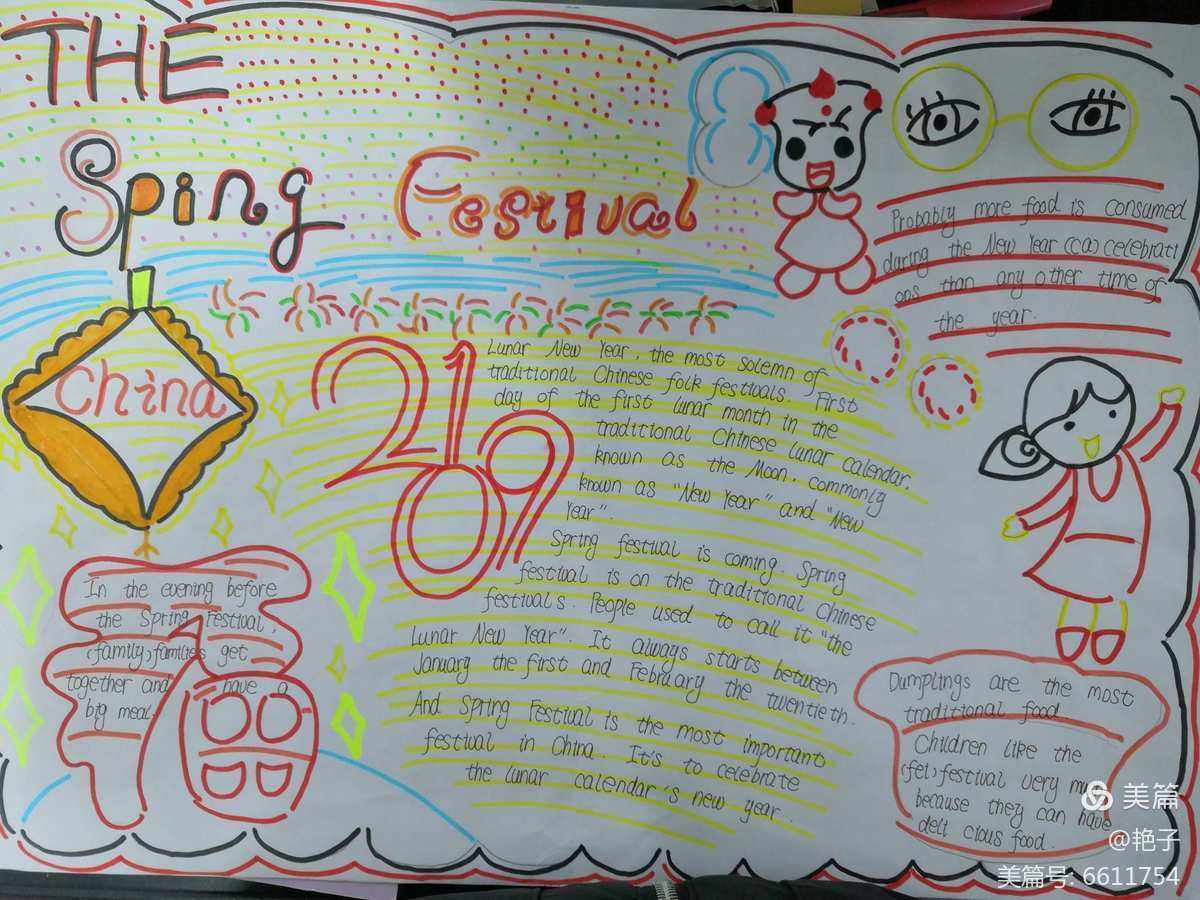 THE
Sping Festival
China
2019
Probably more food is consumed
daring the New Year (ca) celebrati
ons than any other time of
the year.
Lunar New Year, the most solemn of
traditional Chinese folk festivals. First
day of the first lunar month in the
traditional Chinese lunar calendar,
known as the Moon, commonly
known as "New Year" and "New
Year".
Spring festival is coming. Spring
festival is on the traditional Chinese
festivals. People used to call it "the
Lunar New Year". It always starts between
January the first and February the twentieth.
And Spring Festival is the most important
festival in China. It's to celebrate
the lunar calendar's new year.
In the evening before
the Spring Festival,
(family) families get
together and have a
big meal.
Dumplings are the most
traditional food.
Children like the
(fel) festival very
because they can have
deli cious food.
美篇
@艳子
美篇号: 6611754